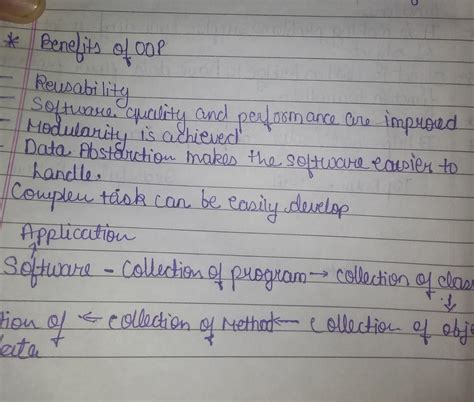 * Benefits of OOP
- Reusability
- Software quality and performance are improved
- Modularity is achieved
- Data Abstarction makes the software easier to
handle.
Complex task can be easily develop
Application
↑
Software - Collection of program → collection of clas
↓
tion of ← collection of Method ← collection of obje
data